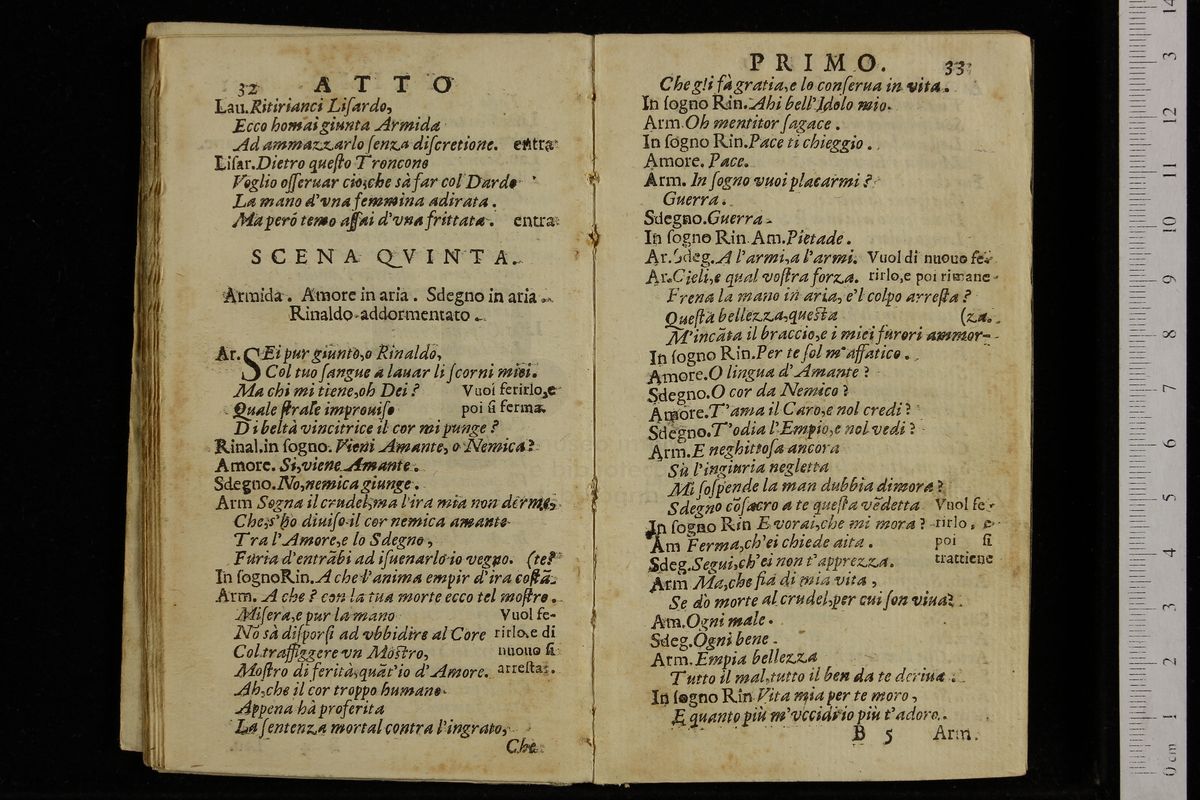 32 ATTO
Lau. Ritirianci Lisardo,
Ecco homai giunta Armida
Ad ammazzarlo senza discretione. entra
Lisar. Dietro questo Troncone
Voglio osseruar ciò, che sà far col Dardo
La mano d'vna femmina adirata.
Ma però temo assai d'vna frittata. entra
SCENA QVINTA.
Armida. Amore in aria. Sdegno in aria.
Rinaldo addormentato.
Ar. SEi pur giunto, o Rinaldo,
Col tuo sangue a lauar li scorni miei.
Ma chi mi tiene, oh Dei? Vuol ferirlo, e
Quale strale improuiso poi si ferma.
Di beltà vincitrice il cor mi punge?
Rinal. in sogno. Vieni Amante, o Nemica?
Amore. Si, viene Amante.
Sdegno. No, nemica giunge.
Arm Sogna il crudel, ma l'ira mia non dorme,
Che, s'hò diuiso il cor nemica amante
Tra l'Amore, e lo Sdegno,
Furia d'entrãbi ad isuenarlo io vegno. (te?
In sogno Rin. A che l'anima empir d'ira costã-
Arm. A che? con la tua morte ecco tel mostro.
Misera, e pur la mano Vuol fe-
Nõ sà disporsi ad vbbidire al Core rirlo, e di
Col traffiggere vn Mostro, nuouo si
Mostro di ferità, quãt'io d'Amore. arresta.
Ah, che il cor troppo humano
Appena hà proferita
La sentenza mortal contra l'ingrato,
Che
PRIMO. 33
Che gli fà gratia, e lo conserua in vita.
In sogno Rin. Ahi bell'Idolo mio.
Arm Oh mentitor sagace.
In sogno Rin. Pace ti chieggio.
Amore. Pace.
Arm. In sogno vuoi placarmi?
Guerra.
Sdegno. Guerra.
In sogno Rin Am. Pietade.
Ar. Sdeg. A l'armi, a l'armi. Vuol di nuouo fe-
Ar. Cieli, e qual vostra forza. rirlo, e poi rimane
Frena la mano in aria, e'l colpo arresta?
Questa bellezza, questa (za.
M'incãta il braccio, e i miei furori ammor-
In sogno Rin. Per te sol m'affatico.
Amore. O lingua d'Amante?
Sdegno. O cor da Nemico?
Amore. T'ama il Caro, e nol credi?
Sdegno. T'odia l'Empio, e nol vedi?
Arm. E neghittosa ancora
Sù l'ingiuria negletta
Mi sospende la man dubbia dimora?
Sdegno cõsacro a te questa vẽdetta Vuol fe-
In sogno Rin E vorai, che mi mora? rirlo, e
Am Ferma, ch'ei chiede aita. poi si
Sdeg. Segui, ch'ei non t'apprezza. trattiene
Arm Ma, che fia di mia vita,
Se dò morte al crudel, per cui son viua?
Am. Ogni male.
Sdeg. Ogni bene.
Arm. Empia bellezza
Tutto il mal, tutto il ben da te deriua.
In sogno Rin Vita mia per te moro,
E quanto più m'vccidi io più t'adoro.
B 5 Arm.